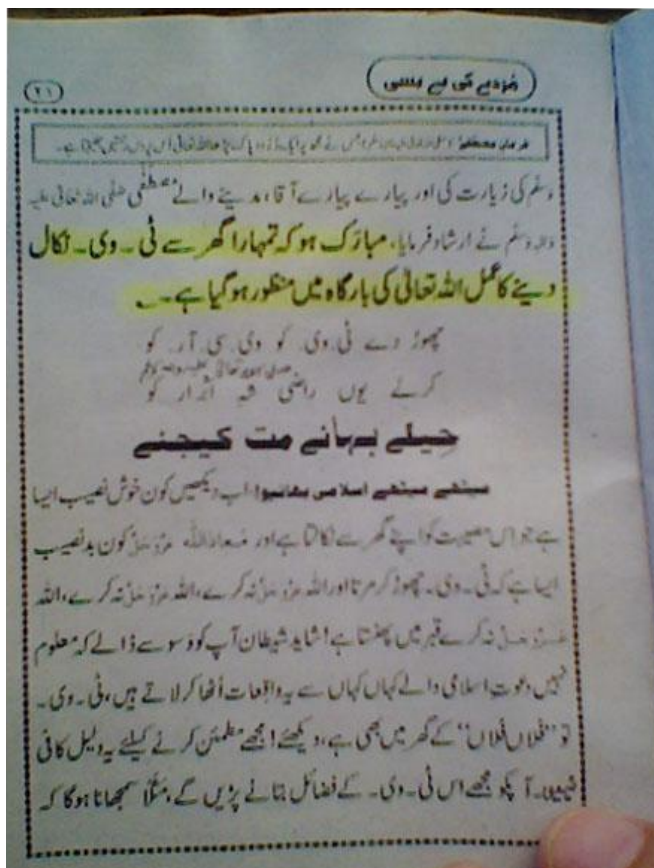 مُردے کی بے بسی
٢١
فرمانِ مصطفےٰ
وسلّم کی زیارت کی اور پیارے پیارے آقا، مدینے والے مصطفٰی صلّی اللہ تعالیٰ علیہ
والہٖ وسلّم نے ارشاد فرمایا، مبارَک ہو کہ تمہارا گھر سے ٹی۔وی۔ نکال
دینے کا عمل اللہ تعالیٰ کی بارگاہ میں منظور ہو گیا ہے۔
چھوڑ دے ٹی.وی. کو وی.سی.آر. کو
کرلے یوں راضی شہِ اَبرار کو
حِیلے بہانے مت کیجئے
میٹھے میٹھے اسلامی بھائیو! اب دیکھیں کون خوش نصیب ایسا
ہے جو اس مصیبت کو اپنے گھر سے نکالتا ہے اور مَعاذَ اللہ عَزَّوَجَلَّ کون بدنصیب
ایسا ہے کہ ٹی۔وی۔ چھوڑ کر مرتا اور اللہ عَزَّوَجَلَّ نہ کرے، اللہ عَزَّوَجَلَّ نہ کرے، اللہ
عَزَّوَجَلَّ نہ کرے قبر میں پھنستا ہے! شاید شیطان آپ کو وَسوسے ڈالے کہ معلوم
نہیں دعوتِ اسلامی والے کہاں کہاں سے یہ واقِعات اُٹھا کر لاتے ہیں، ٹی۔وی۔
تو ”فُلاں فُلاں“ کے گھر میں بھی ہے، دیکھئے! مجھے مطمئن کرنے کیلئے یہ دلیل کافی
نہیں۔ آپکو مجھے اس ٹی۔وی۔ کے فضائل بتانے پڑیں گے، مثَلاً سمجھانا ہوگا کہ